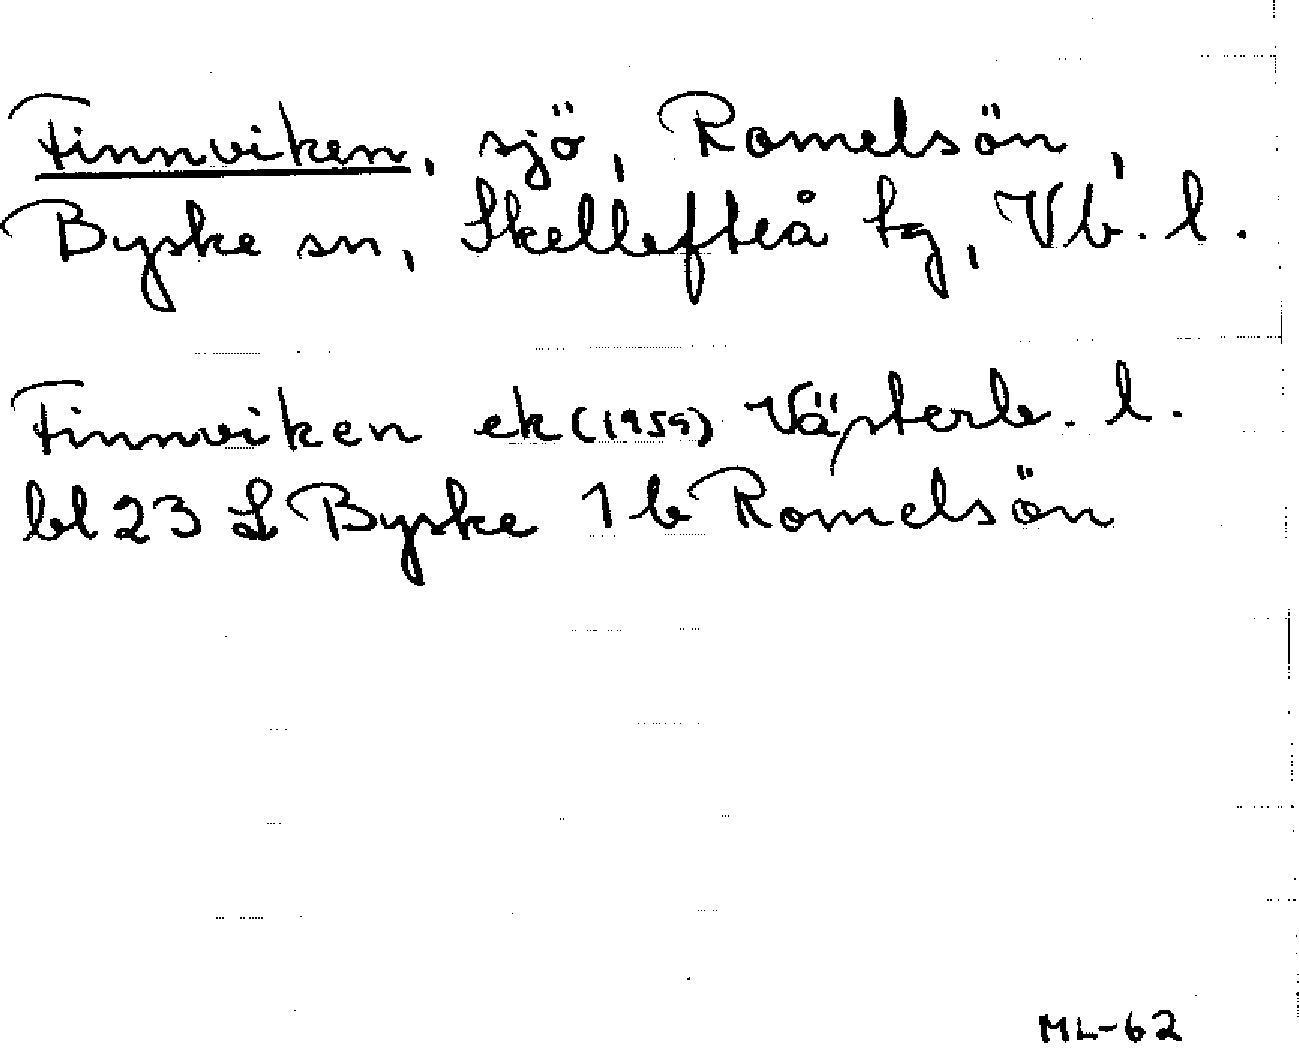 Finnviken, sjö, Romelsön,
Byske sn, Skellefteå tg, Vb. l.
Finnviken ek (1959) Västerb. l.
bl 23 L Byske 1 b Romelsön
ML-62